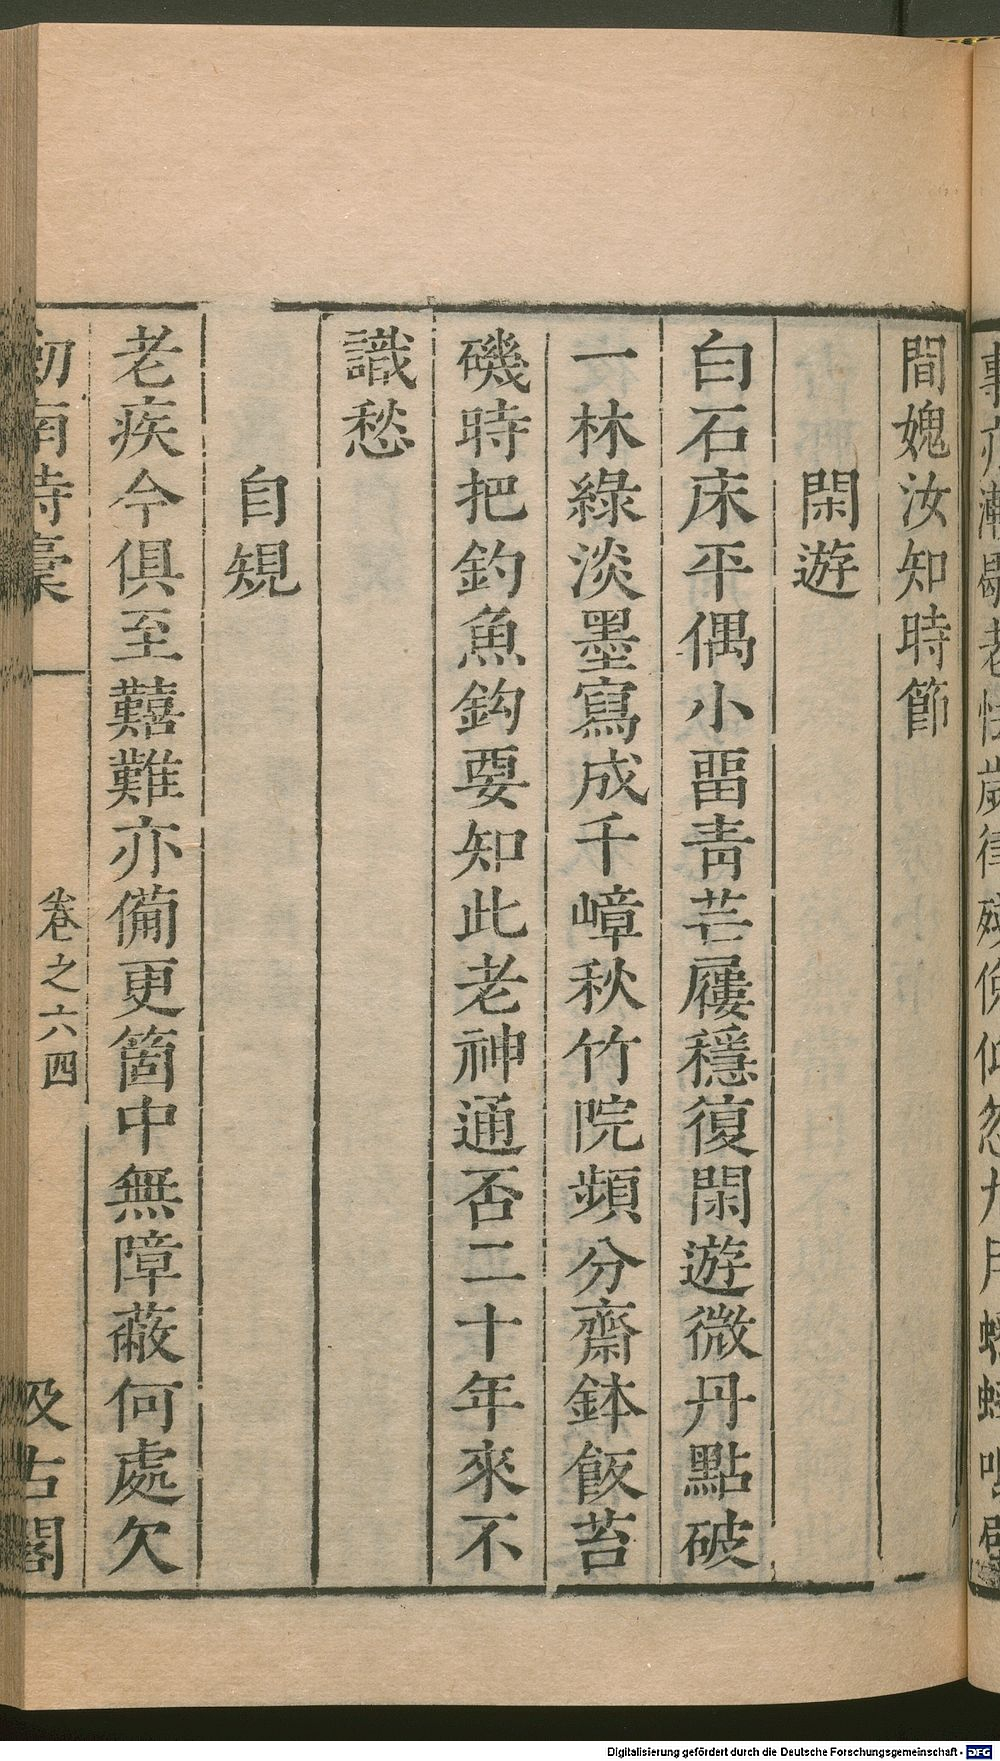 間媿汝知時節
閑遊
白石床平偶小畱青芒屨穩復閑遊微丹點破
一林綠淡墨寫成千嶂秋竹院頻分齋鉢飯苔
磯時把釣魚鈎要知此老神通否二十年來不
識愁
自規
老疾今俱至囏難亦備更箇中無障蔽何處欠
劒南詩稾
卷之六四
汲古閣
Digitalisierung gefördert durch die Deutsche Forschungsgemeinschaft - DFG